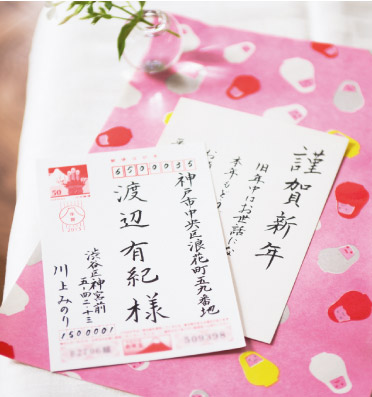 50
6500035
神戸市中央区浪花町五九番地
渡辺有紀様
渋谷区神宮前
五ー四二ー十三
川上みのり
1500001
509398
謹賀新年
旧年中はお世話にな
本年もどの